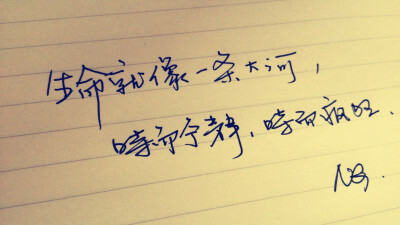 生命就像一条大河，
时而宁静，时而疯狂．